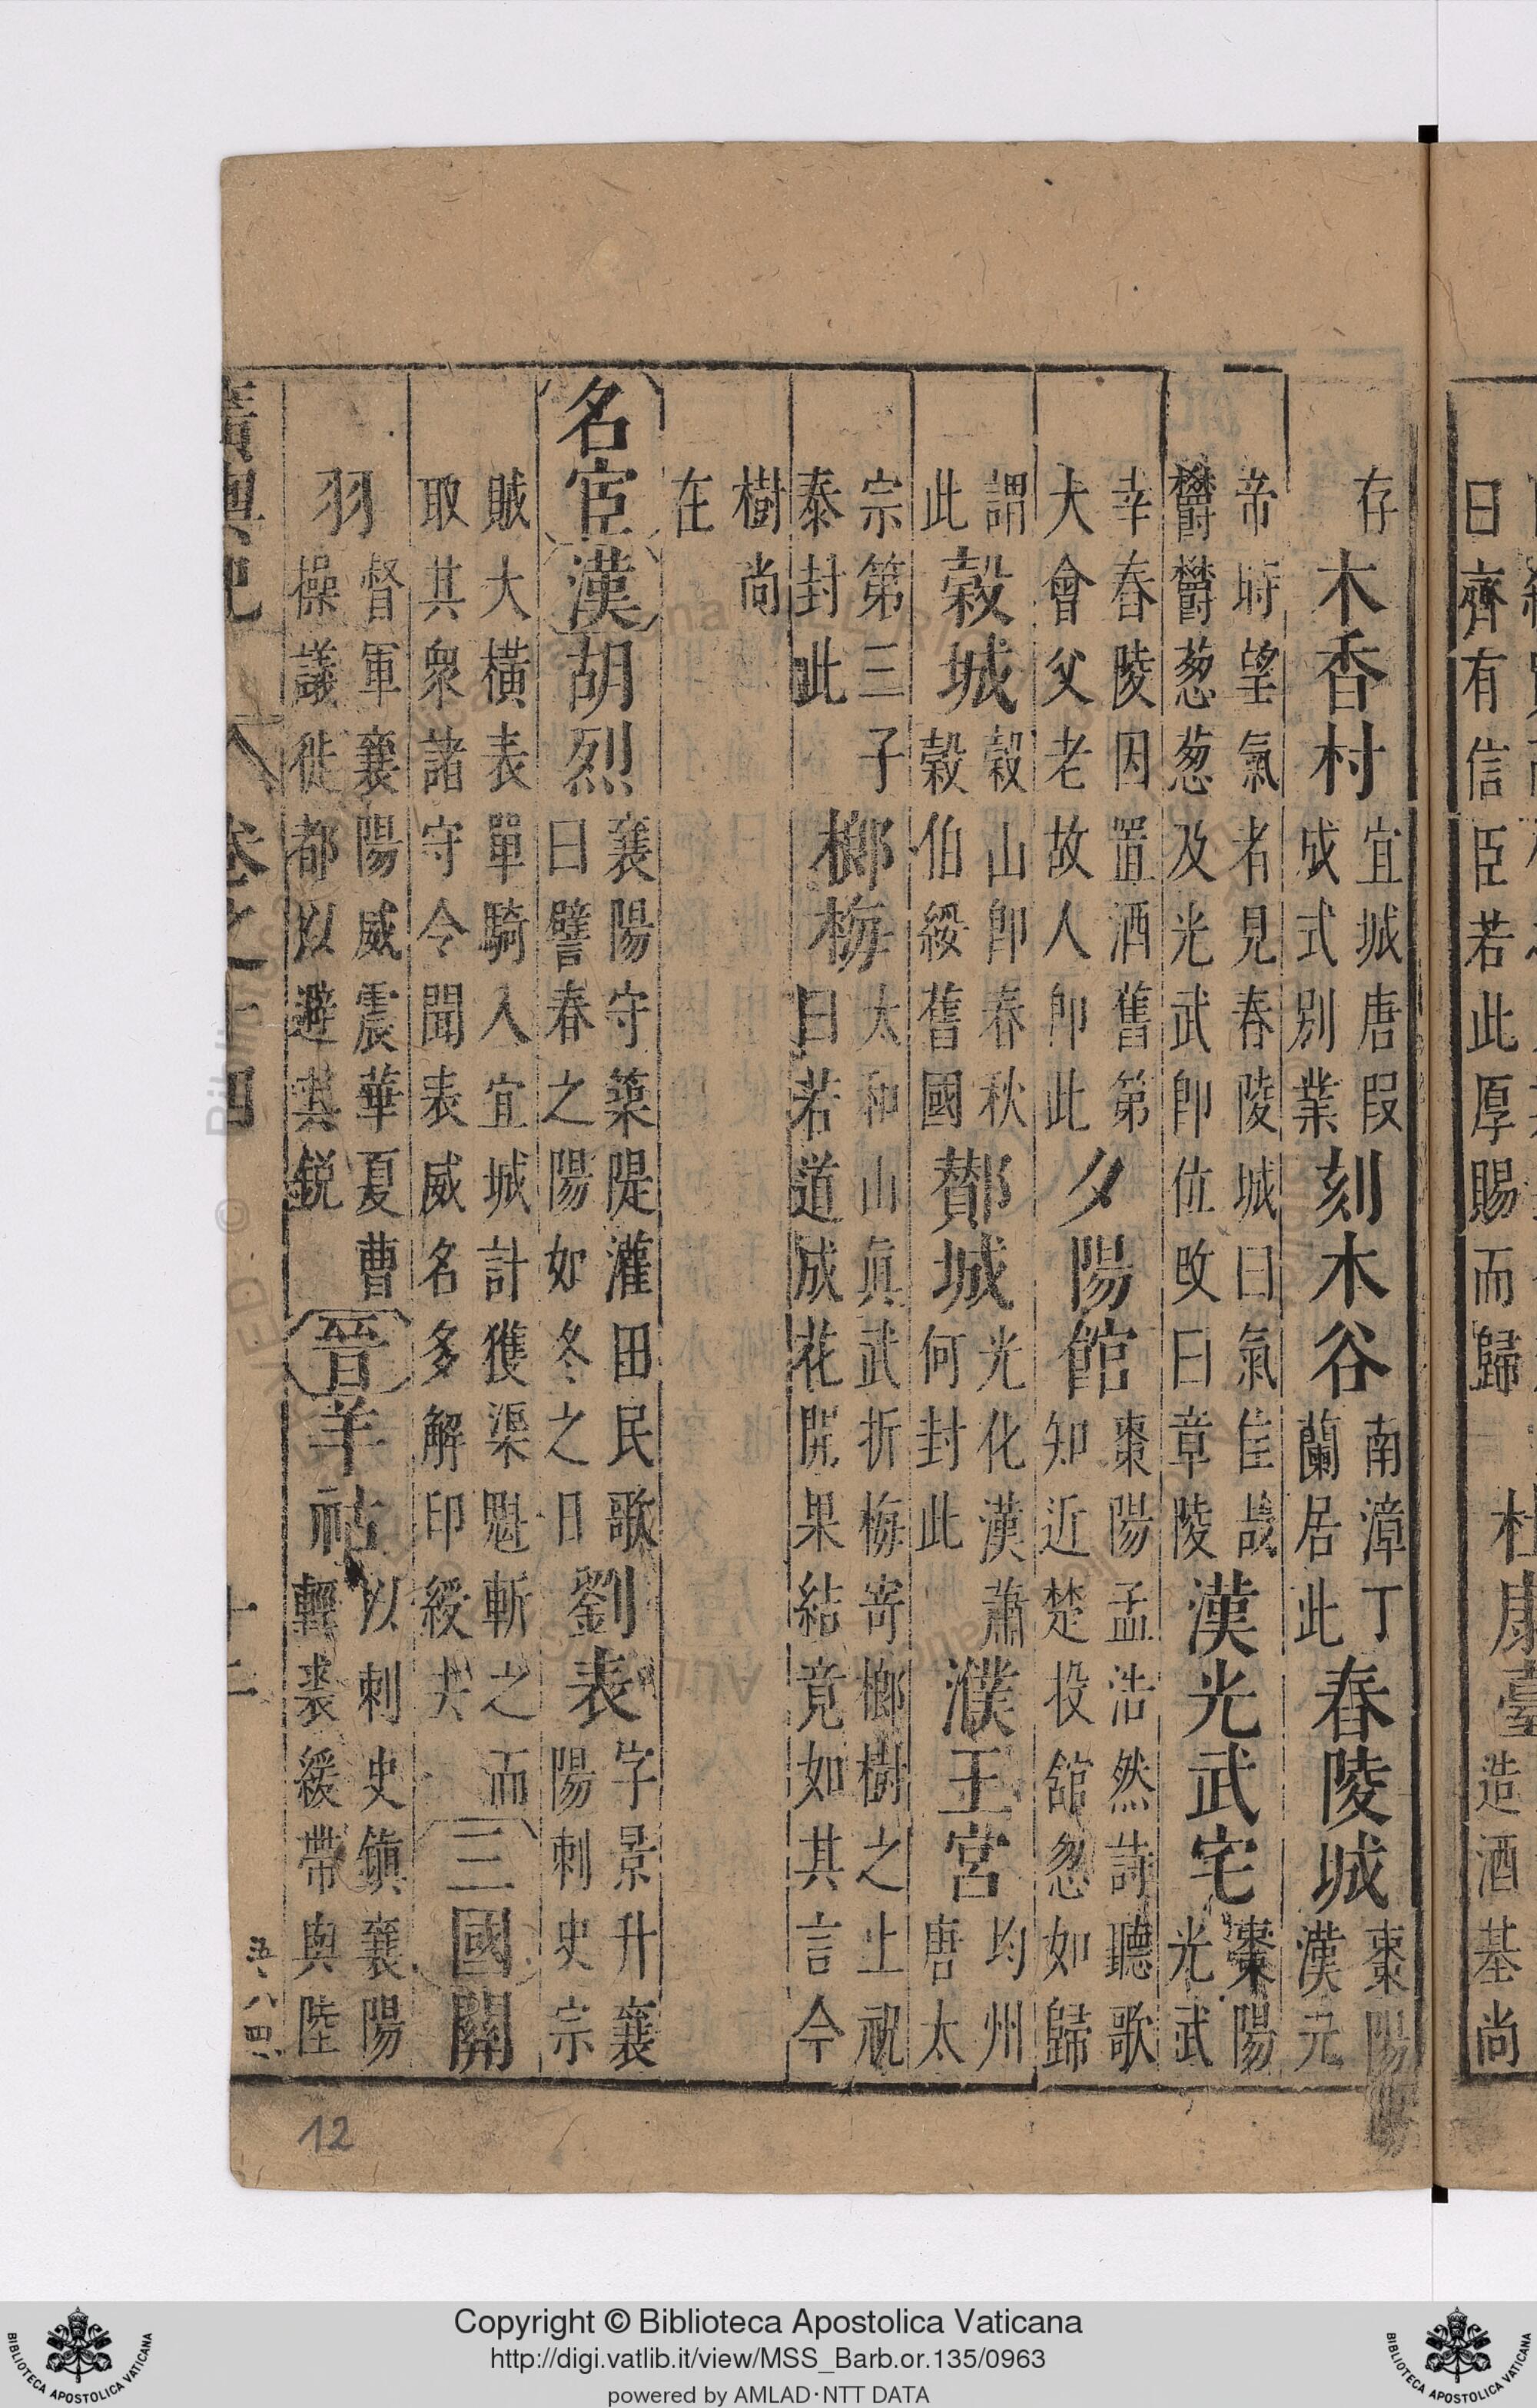 曰齊有信臣若此厚賜而歸 杜康臺 造酒基尚
存 木香村 宜城唐叚成式別業 刻木谷 南漳丁蘭居此 舂陵城 棗陽漢元
帝時望氣者見舂陵城曰氣佳哉鬱鬱葱葱及光武即位改曰章陵 漢光武宅 棗陽光武
幸舂陵因置酒舊第大會父老故人即此 夕陽館 棗陽孟浩然詩聽歌知近楚投舘忽如歸
謂此 榖城 榖山即春秋榖伯綏舊國 酇城 光化漢蕭何封此 濮王宮 均州唐太
宗第三子泰封此 榔梅 太和山眞武折梅寄榔樹之上祝曰若道成花開果結竟如其言今
樹尚在
名宦 漢 胡烈 襄陽守築隄灌田民歌曰譬春之陽如冬之日 劉表 字景升襄陽刺史宗
賊大橫表單騎入宜城計獲渠魁斬之而取其衆諸守令聞表威名多解印綬去 三國 關
羽 督軍襄陽威震華夏曹操議徙都以避其鋭 晉 羊祜 以刺史鎮襄陽輕裘緩帶與陸
廣輿記 卷之十四 十二 五八四
12
Copyright © Biblioteca Apostolica Vaticana
http://digi.vatlib.it/view/MSS_Barb.or.135/0963
powered by AMLAD·NTT DATA
BIBLIOTECA APOSTOLICA VATICANA
BIBLIOTECA APOSTOLICA VATICANA